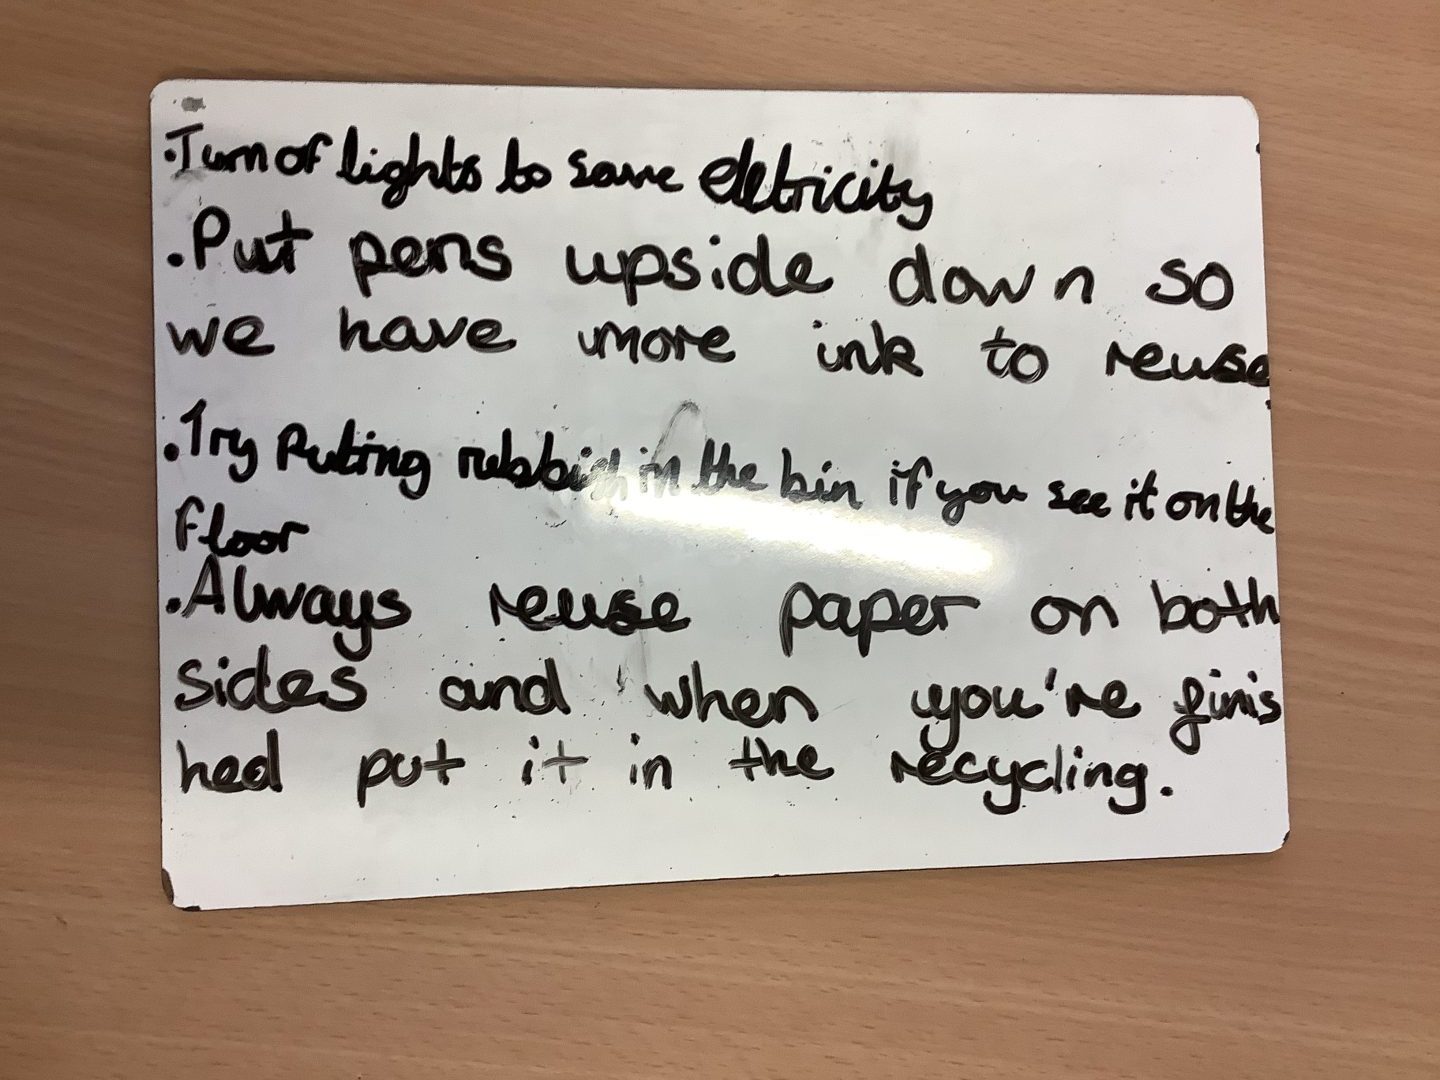 .Turn of lights to save eletricity
.Put pens upside down so
we have more ink to reuse
.Try Puting rubbish in the bin if you see it on the
floor
.Always reuse paper on both
sides and when you're finis
hed put it in the recycling.